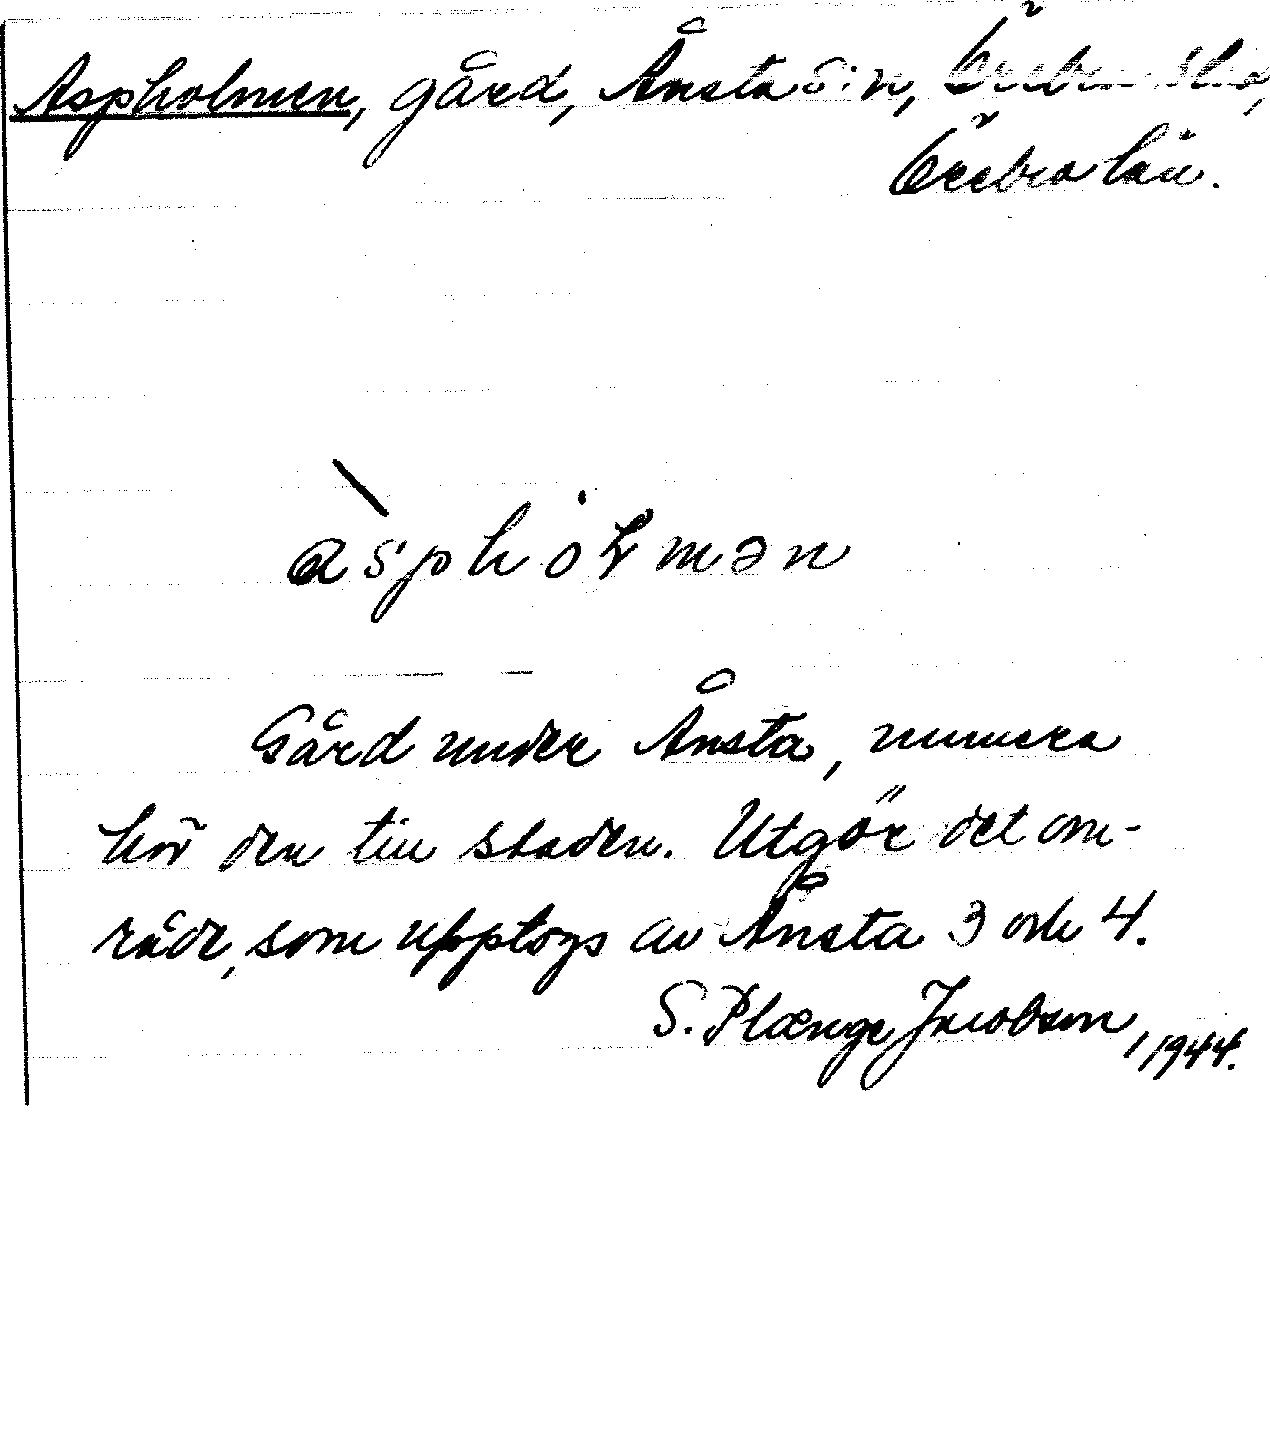 Aspholmen, gård, Ånsta s:n, Örebro hd,
Örebro län.
àsphòɫmən
Gård under Ånsta, numera
hör den till staden. Utgör det om-
råde, som upptogs av Ånsta 3 och 4.
S. Plænge Jacobson, 1944.